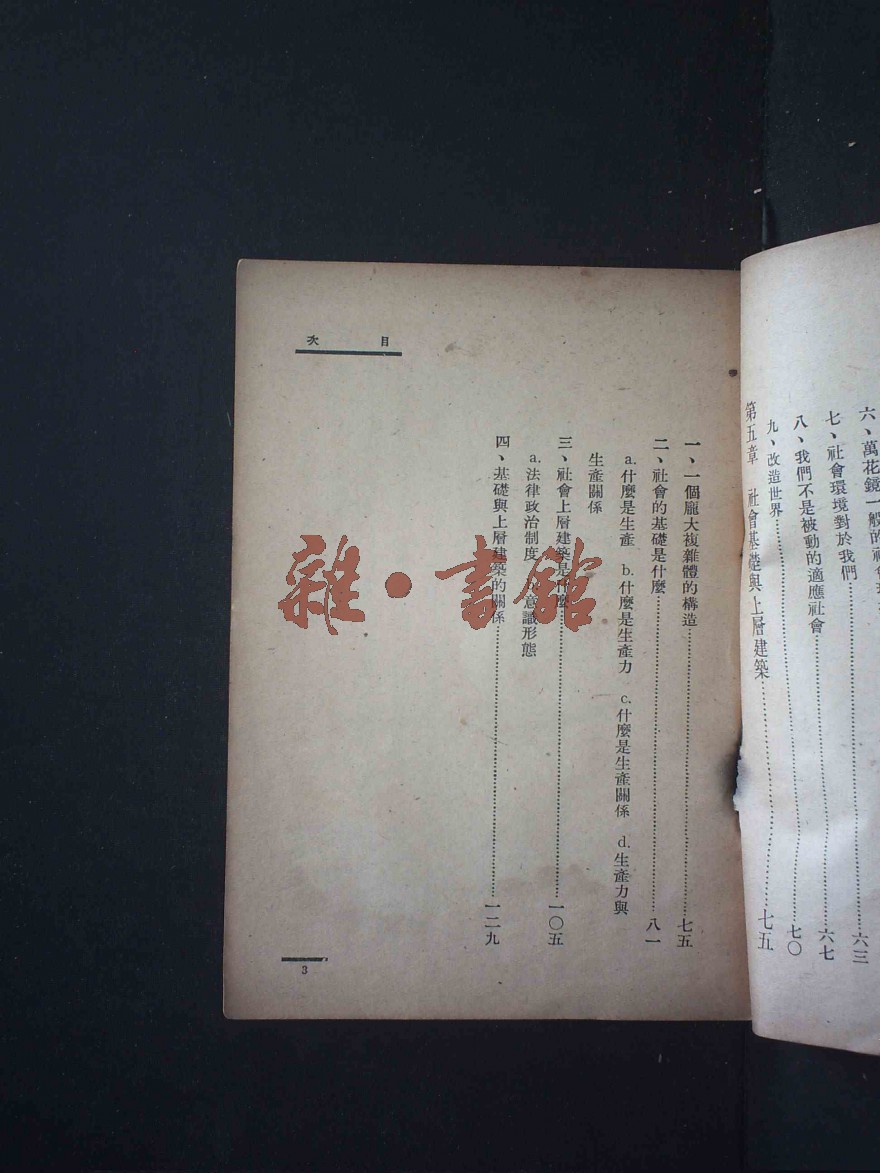 六、萬花鏡一般的社會
六三
七、社會環境對於我們………六七
八、我們不是被動的適應社會………七〇
九、改造世界………七五
第五章 社會基礎與上層建築………七五
目次
一、一個龐大複雜體的構造………七五
二、社會的基礎是什麼………八一
a.什麼是生產 b.什麼是生產力 c.什麼是生產關係 d.生產力與
生產關係
三、社會上層建築是什麼………一〇五
a.法律政治制度 意識形態
四、基礎與上層建築的關係………一二九
3
雜·書館